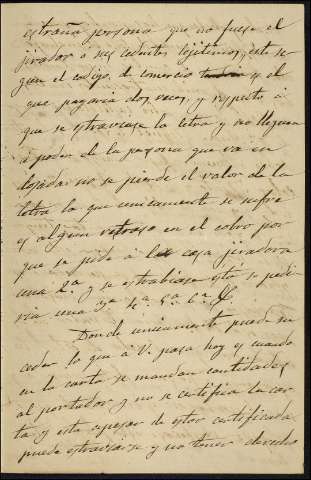 estraña persona que no fuese el
jirador o sus cedentes lejitimos, este se-
gun el codigo de comercio tendra y el
que pagaria dos veces, y respecto á
que se estraviase la letra y no llegara
á poder de la persona que va en
dosada no se pierde el valor de la
letra lo que unicamente se sufre
es algun retraso en el cobro por
que se pide á la casa jiradora
una 2.ª y se estrabiase esta se pedi-
ria una 3ª 4ª 5ª 6ª
Donde unicamente puede su
ceder lo que á V. pasa hoy es cuando
en la carta se mandan cantidades
al portador y no se certifica la car
ta y esta apesar de estar certificada
puede estraviarse y no tener derecho